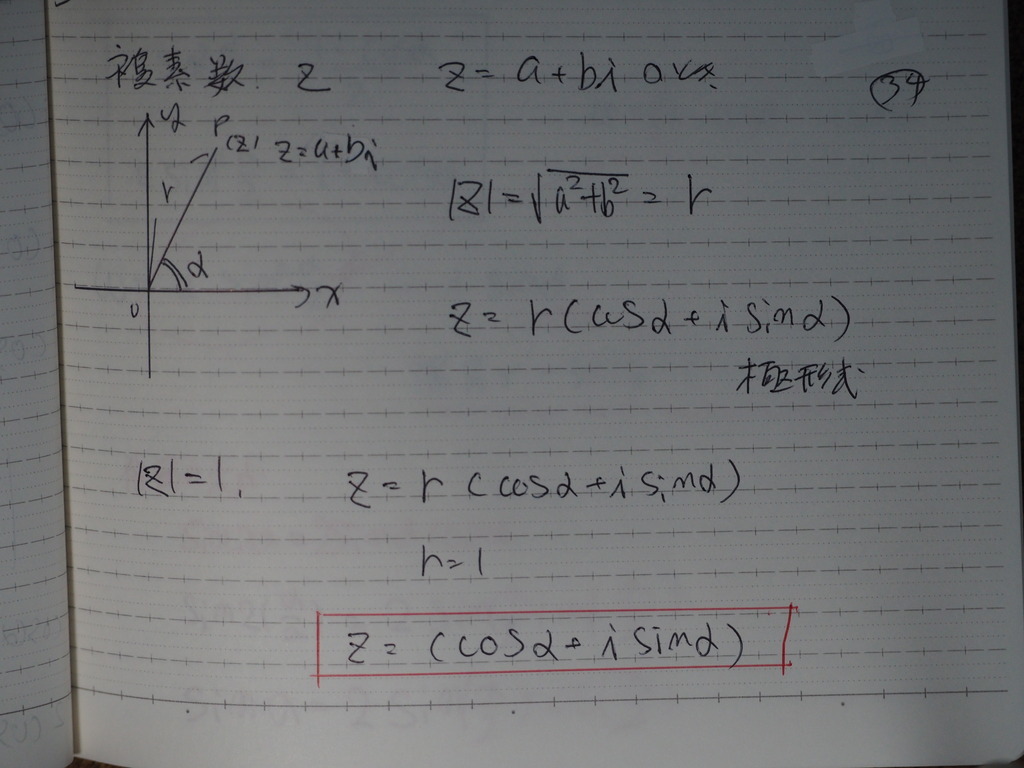 複素数 z z = a + bi のとき
34
y
P(z) z = a + bi
r
|z| = √a²+b² = r
α
0 x
z = r (cosα + i sinα)
極形式
|z| = 1, z = r (cosα + i sinα)
r = 1
z = (cosα + i sinα)